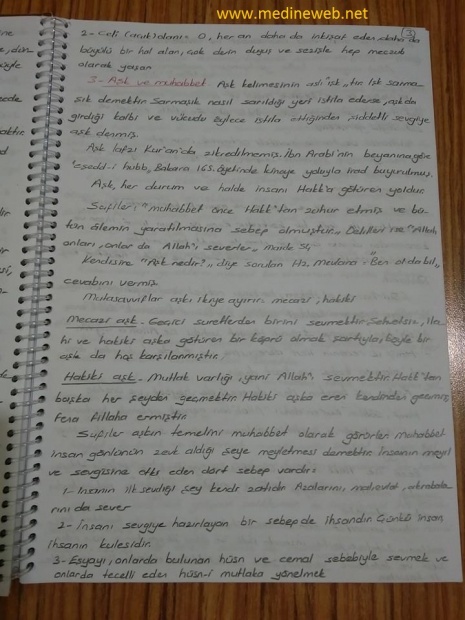 www.medineweb.net
2- Celi (açık) olanı: O, her an daha da inkişaf eden, daha da
büyülü bir hal alan, çok derin duyuş ve sezişle hep meczub
olarak yaşar.
3- Aşk ve muhabbet Aşk kelimesinin aslı "ışk" tır. Işk sarma-
şık demektir. Sarmaşık nasıl sarıldığı yeri istila ederse, aşk da
girdiği kalbi ve vücudu öylece istila ettiğinden şiddetli sevgiye
aşk denmiş.
Aşk lafzı Kur'an'da zikredilmemiş. İbn Arabi'nin beyanına göre
"eşedd-i hubb, Bakara 165. âyetinde kinaye yoluyla irad buyrulmuş.
Aşk, her durum ve halde insanı Hakk'a götüren yoldur.
Sufiler; "muhabbet önce Hakk'tan zuhur etmiş ve bü-
tün âlemin yaratılmasına sebep olmuştur." Delilleri ise "Allah
onları, onlar da Allah'ı severler" maide 54
Kendisine "Aşk nedir?" diye sorulan Hz. Mevlana "Ben ol da bil"
cevabını vermiş
Mutasavvıflar aşkı ikiye ayırır: mecazi, hakiki
Mecazi aşk- Geçici suretlerden birini sevmektir. Şehvetsiz, ila-
hi ve hakiki aşka götüren bir köprü olmak şartıyla, böyle bir
aşk da hoş karşılanmıştır.
Hakiki aşk- Mutlak varlığı, yani Allah'ı sevmektir. Hakk'tan
başka her şeyden geçmektir. Hakiki aşka eren kendinden geçmiş
fena fillaha ermiştir
Sufiler aşkın temelini muhabbet olarak görürler. Muhabbet
insan gönlünün zevk aldığı şeye meyletmesi demektir. İnsanın meyil
ve sevgisine etki eden dört sebep vardır:
1- İnsanın ilk sevdiği şey kendi zatıdır. Azalarını, mal, evlat, akrabala-
rını da sever
2- İnsanı sevgiye hazırlayan bir sebep de ihsandır. Çünkü insan
ihsanın kulesidir.
3- Eşyayı, onlarda bulunan hüsn ve cemal sebebiyle sevmek ve
onlarda tecelli eden hüsn-i mutlaka yönelmek